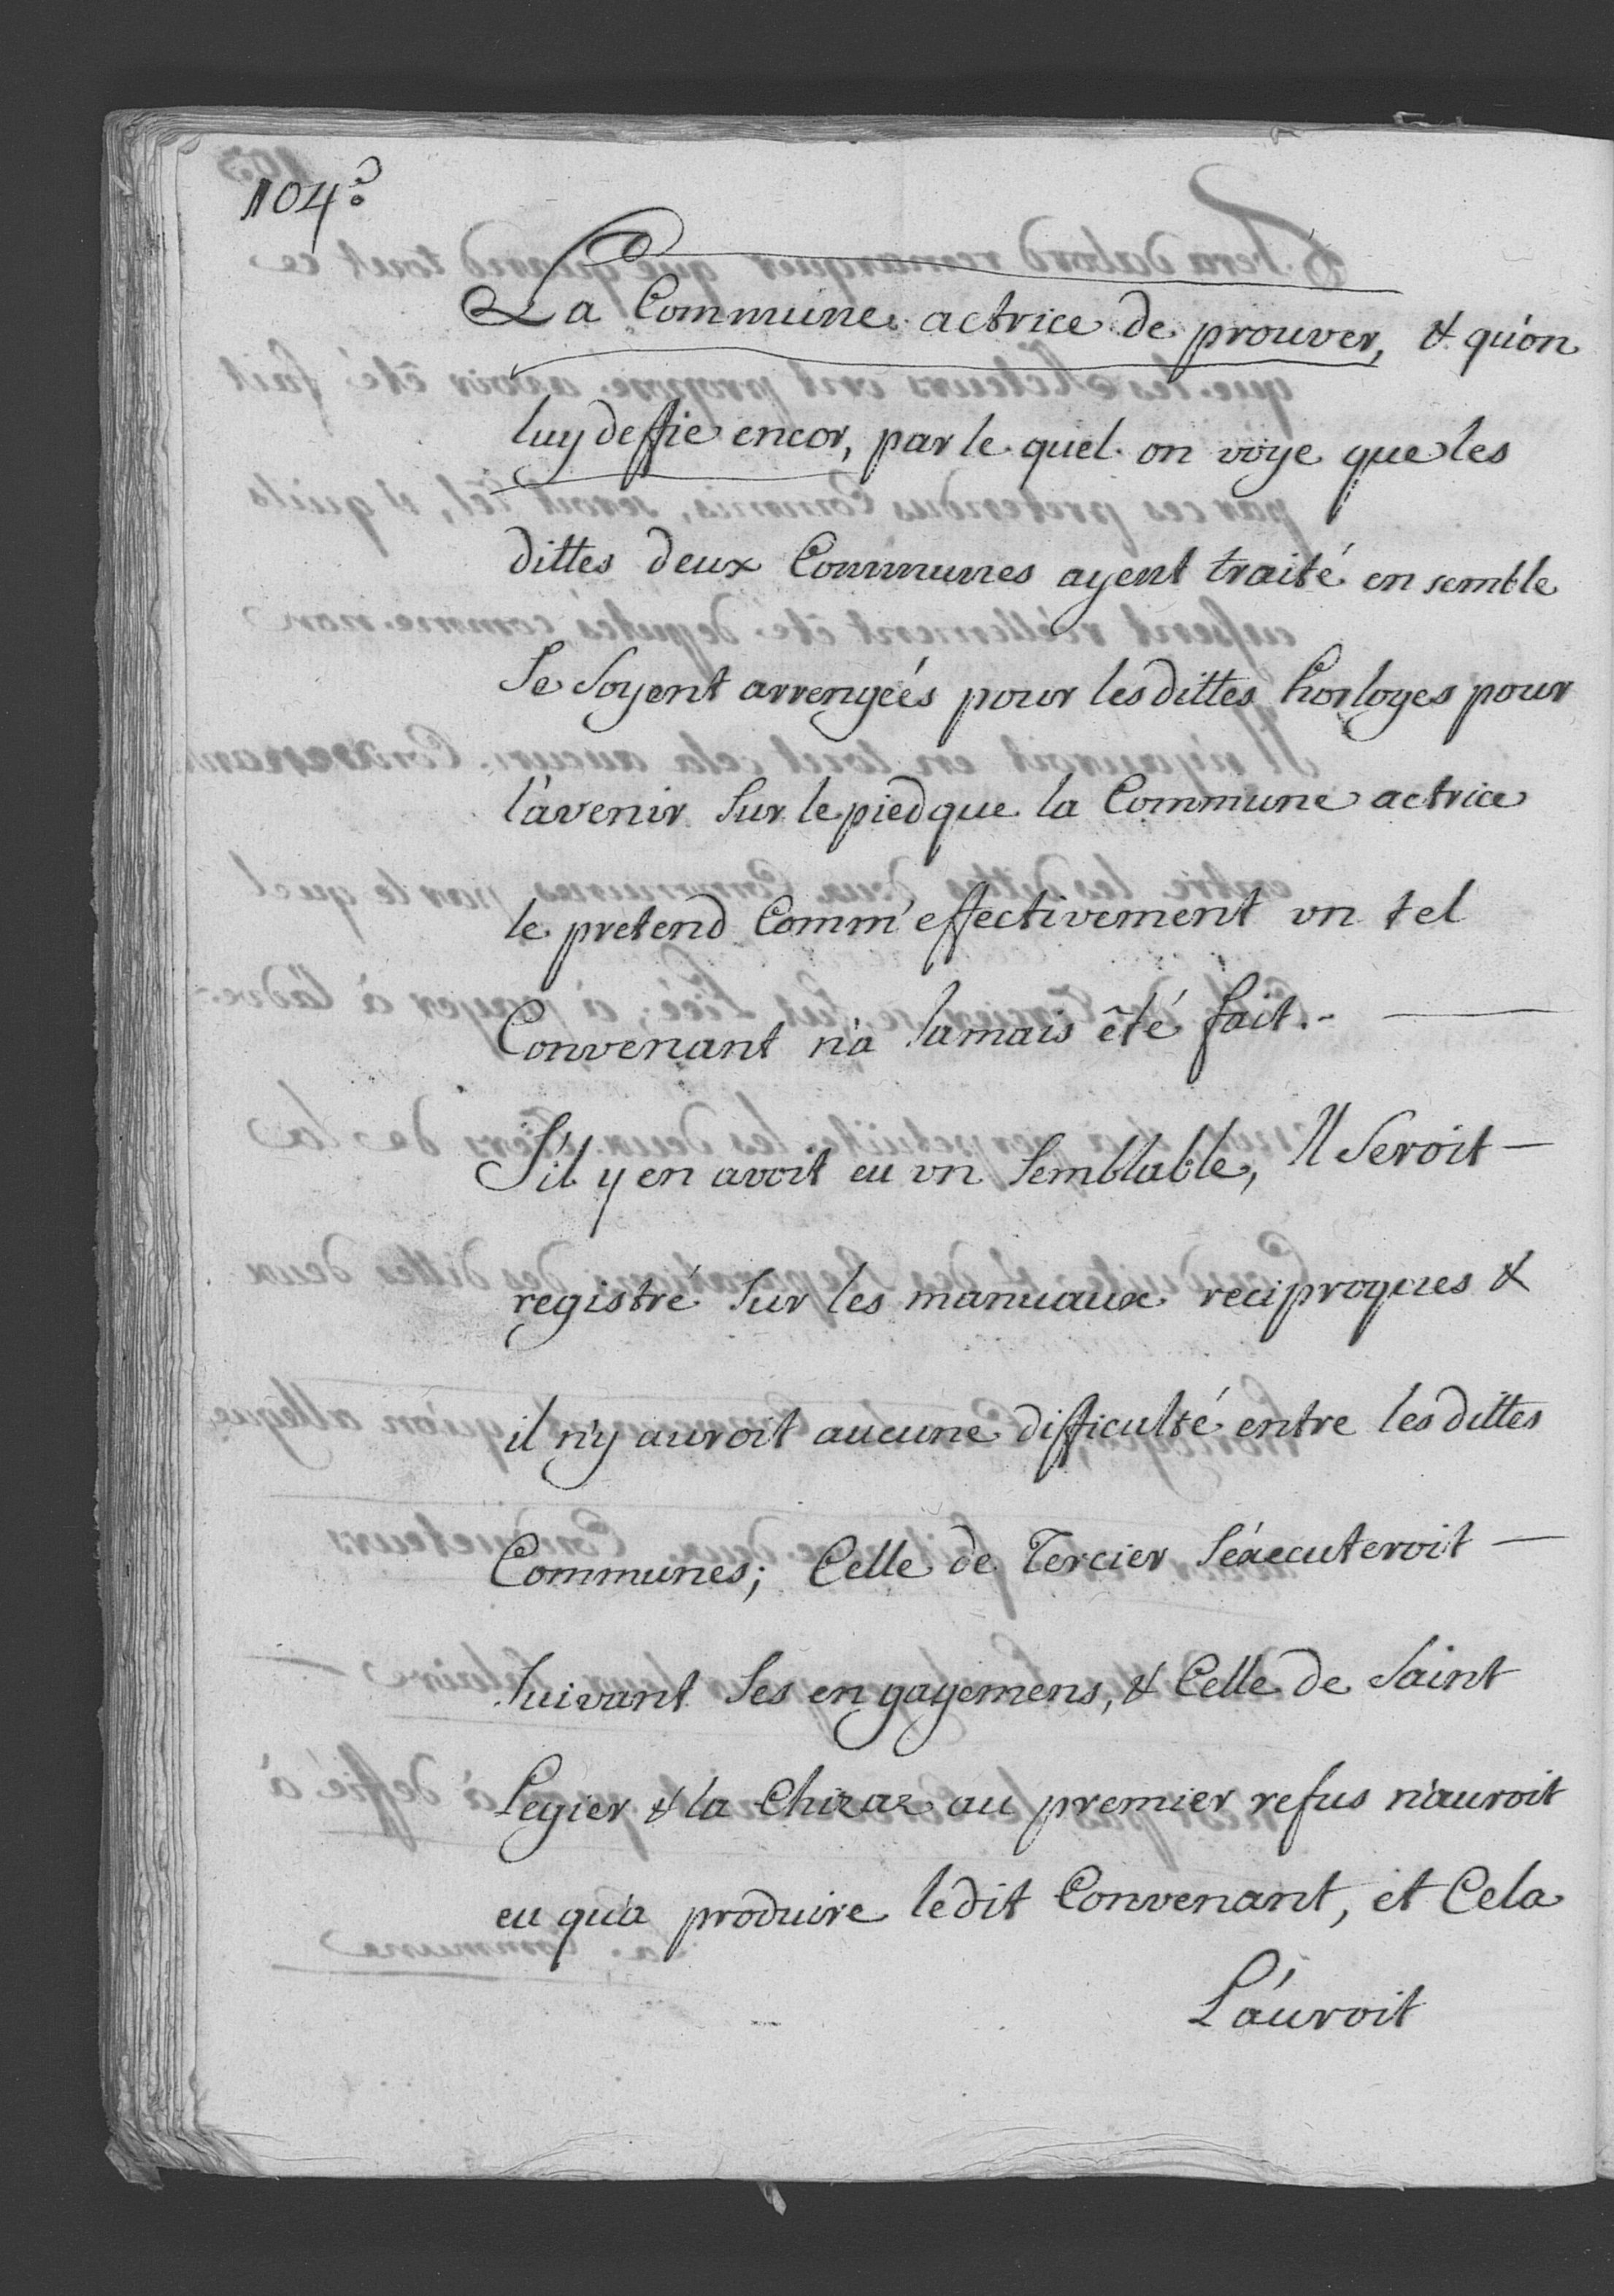 104.e
La Commune actrice de prouver, & qu'on
luy deffie encor, par le quel on voye que les
dittes deux Communes ayent traité en semble
Se Soyent arrengeés pour les dittes horloges pour
l'avenir Sur le pied que la Commune actrice
le pretend Comm' effectivement vn tel
Convenant n'a Jamais êté fait. -
S'il y en avoit eu vn Semblable, Il Seroit -
registré Sur les manuaux reciproques &
il n'y auroit aucune difficulté entre les dittes
Communes; Celle de Tercier S'éxecuteroit -
Suivant Ses en gagemens, & Celle de Saint
Legier & la Chiezaz au premier refus n'auroit
eu qu'a produire ledit Convenant, et Cela
L'auroit